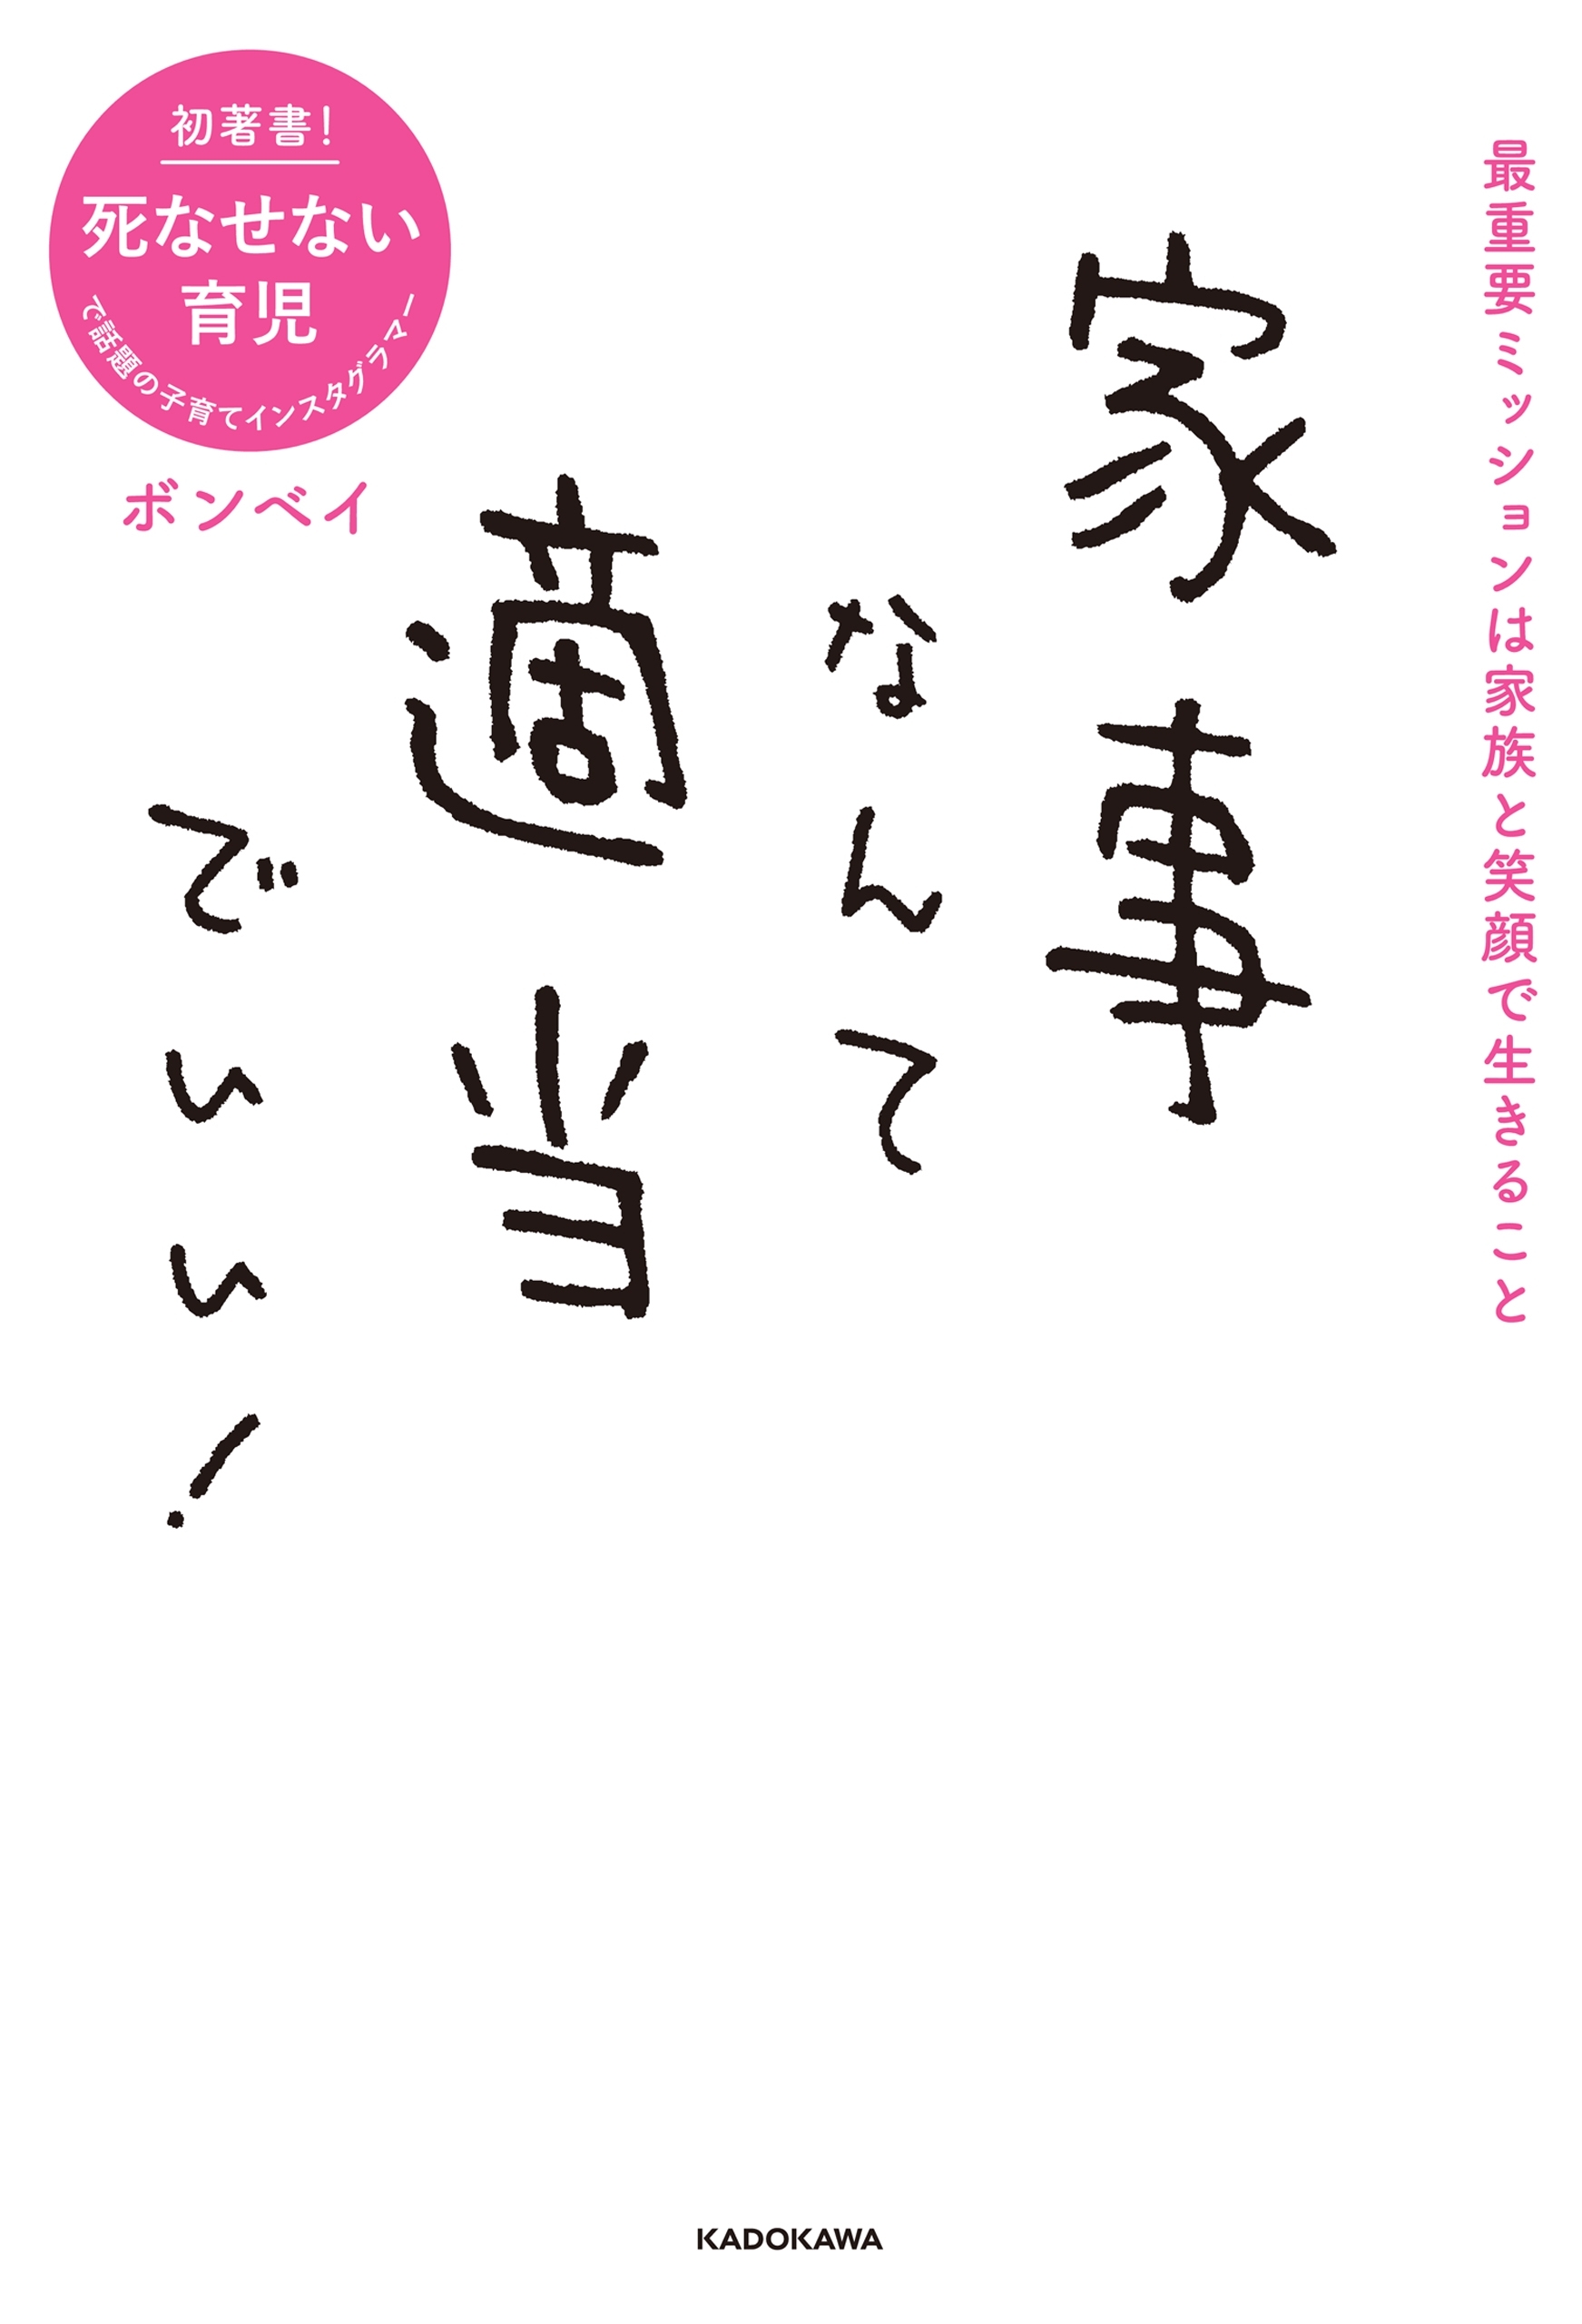 最重要ミッションは家族と笑顔で生きること
家事
なんて
適当
でいい！
初著書！
死なせない
育児
で話題の子育てインスタグラマー
ボンベイ
KADOKAWA